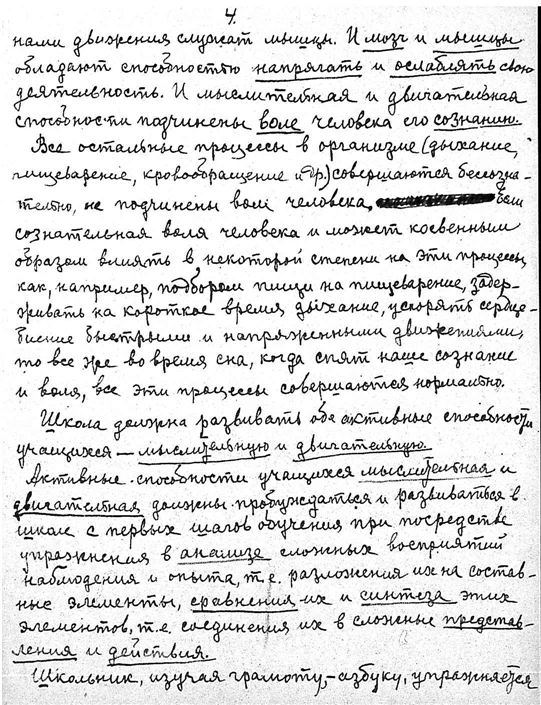 4.
нами движения служат мышцы. И мозг и мышцы
обладают способностью напрягать и ослаблять свою
деятельность. И мыслительная и двигательная
способности подчинены воле человека его сознанию.
Все остальные процессы в организме (дыхание,
пищеварение, кровообращение и др.) совершаются бессозна-
тельно, не подчинены воли человека. Если
сознательная воля человека и может косвенным
образом влиять в некоторой степени на эти процессы,
как, например, подбором пищи на пищеварение, задер-
живать на короткое время дыхание, ускорять сердце-
биение быстрыми и напряженными движениями,
то все же во время сна, когда спят наше сознание
и воля, все эти процессы совершаются нормально.
Школа должна развивать обе активные способности
учащихся — мыслительную и двигательную.
Активные способности учащихся мыслительная и
двигательная должны пробуждаться и развиваться в
школе с первых шагов обучения при посредстве
упражнения в анализе сложных восприятий
наблюдения и опыта, т.е. разложения их на состав-
ные элементы, сравнения их и синтеза этих
элементов, т.е. соединения их в сложные представ-
ления и действия.
Школьник, изучая грамоту,-азбуку, упражняется